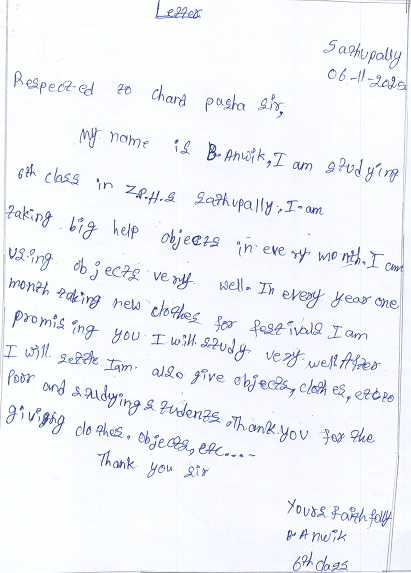 Letter
Sathupally
06-11-2025
Respected to chand pasha sir,
My name is B. Anwik, I am studying
6th class in Z.P.H.S sathupally. I am
taking big help objects in every month. I am
using objects very well. In every year one
month taking new clothes for festivals I am
promising you I will study very well After
I will settle Iam also give objects, clothes, etc to
poor and studying students. Thank you for the
giviging clothes. objects, etc....~
Thank you sir
Yours faithfully
B. Anwik
6th class